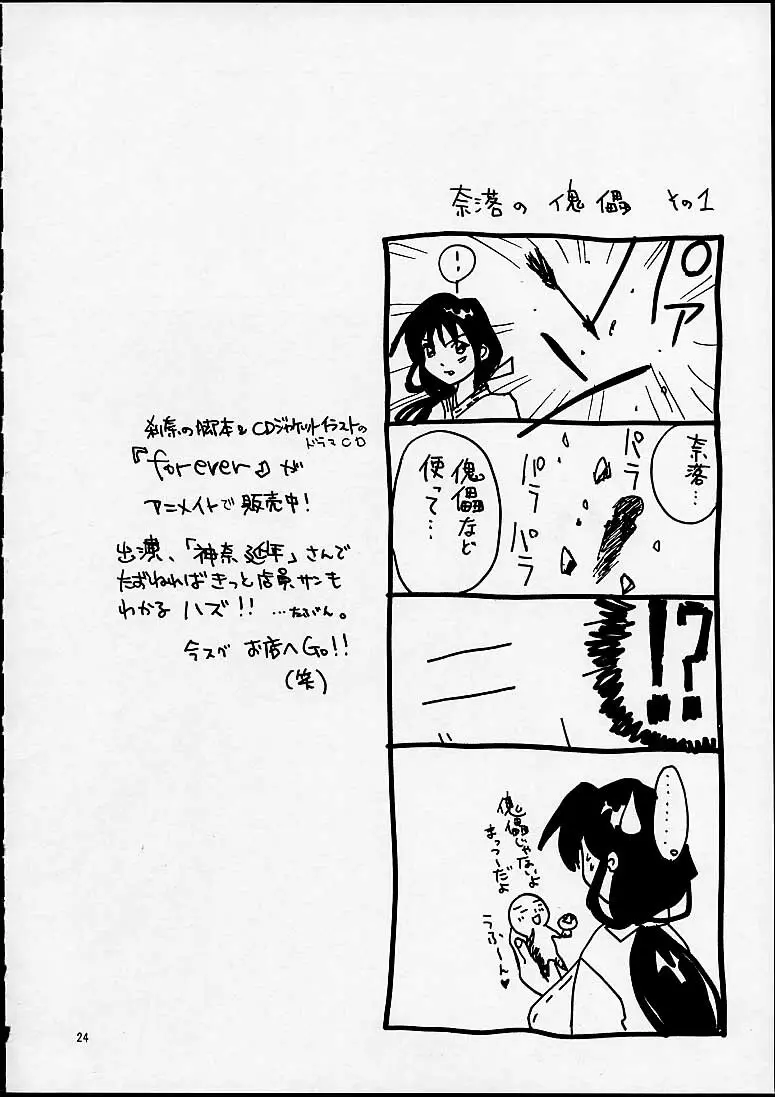 奈落の傀儡 その1
!
パァ
奈落…
パラ
パラ
パラ
傀儡など
使って…
!?
………。
傀儡じゃないよ
まっつーだよ
うふーん♥
刹奈の脚本&CDジャケットイラストの
ドラマCD
『forever』が
アニメイトで販売中!
出演、「神奈延年」さんで
たずねればきっと店員サンも
わかるハズ!! …たぶん。
今スベ お店へGo!!
(笑)
24